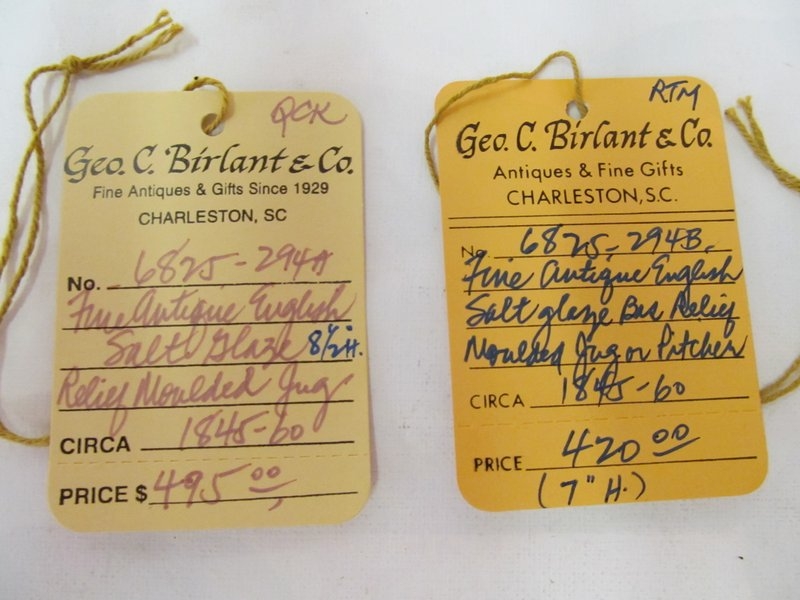 QCK
Geo. C. Birlant & Co.
Fine Antiques & Gifts Since 1929
CHARLESTON, SC
No. 6825-294A
Fine Antique English
Salt Glaze 8 1/2 H.
Relief Moulded Jug
CIRCA 1845-60
PRICE $ 495.00
RTM
Geo. C. Birlant & Co.
Antiques & Fine Gifts
CHARLESTON, S.C.
No. 6825-294B.
Fine Antique English
Salt glaze Bas Relief
Moulded Jug or Pitcher
CIRCA 1845-60
PRICE 420 00
(7" H.)